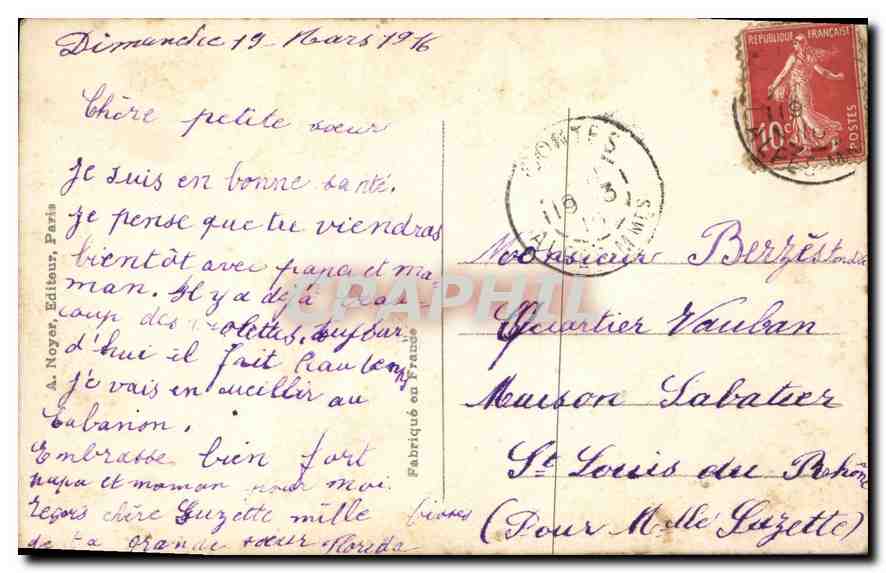 Dimanche 19 Mars 1916
Chère petite sœur
Je suis en bonne santé.
Je pense que tu viendras
bientôt avec papa et ma-
man. Il y a déjà beau-
coup des violettes. Aujour
d'hui il fait beau temps
je vais en cueillir au
Cabanon.
Embrasse bien fort
papa et maman pour moi.
Reçois chère Suzette mille bises
de ta grande sœur Florida
A. Noyer, Editeur, Paris
Fabriqué en France
CPAPHIL
REPUBLIQUE FRANÇAISE
10c
POSTES
CONTES
ALPES MMES
Monsieur Berzès
Quartier Vauban
Maison Sabatier
St Louis du Rhône
(Pour Mlle Suzette)